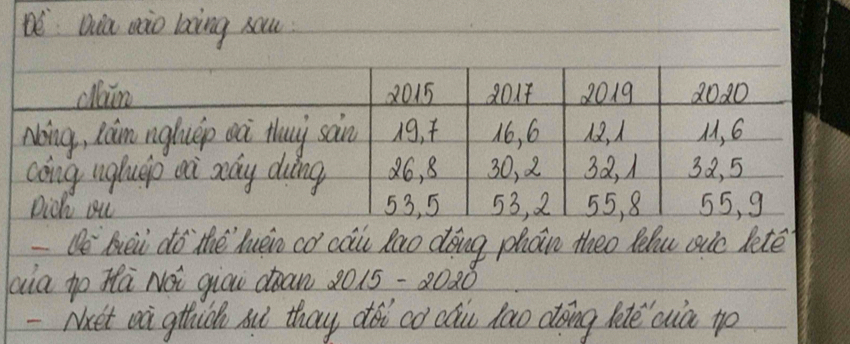 Đề: Dựa vào bảng sau:
Năm 2015 2017 2019 2020
Nông, lâm nghiệp và thuỷ sản 19,7 16,6 12,1 11,6
Công nghiệp và xây dựng 26,8 30,2 32,1 32,5
Dịch vụ 53,5 53,2 55,8 55,9
- Vẽ biểu đồ thể hiện cơ cấu lao động phân theo khu vực ktế
của tp Hà Nội giai đoạn 2015 - 2020
- Nxét và gthích sự thay đổi cơ cấu lao động ktế của tp